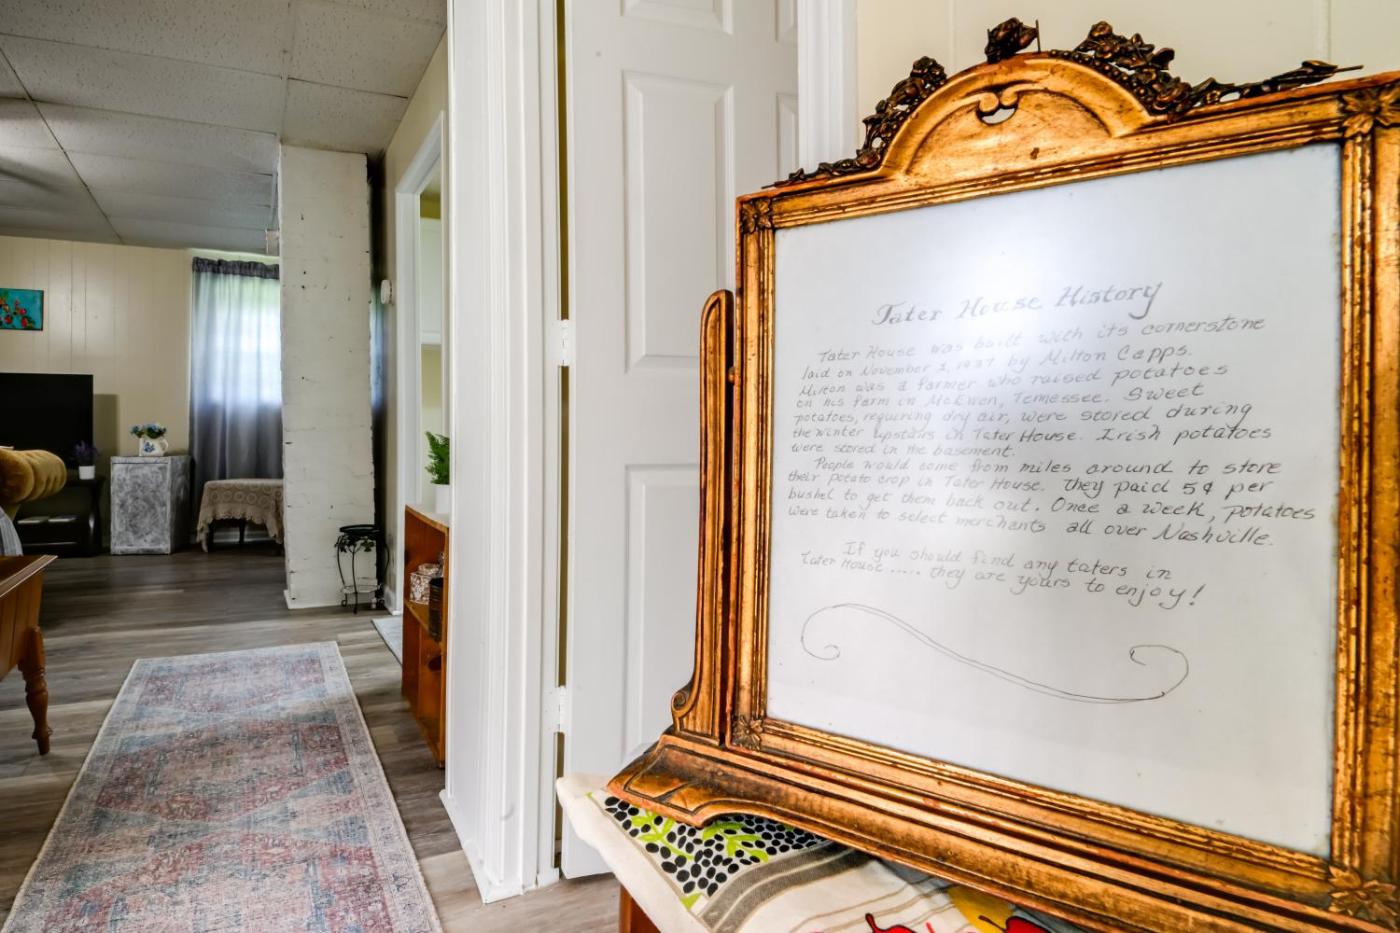 Tater House History
Tater House was built with its cornerstone
laid on November 1, 1937 by Milton Capps.
Milton was a farmer who raised potatoes
on his farm in McEwen, Tennessee. Sweet
potatoes, requiring dry air, were stored during
the winter upstairs in Tater House. Irish potatoes
were stored in the basement.
People would come from miles around to store
their potato crop in Tater House. They paid 5¢ per
bushel to get them back out. Once a week, potatoes
were taken to select merchants all over Nashville.
If you should find any taters in
Tater House ..... they are yours to enjoy!